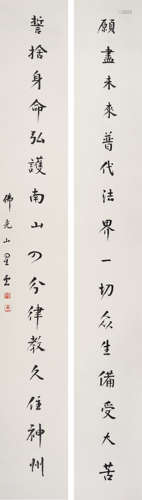 願盡未來普代法界一切众生備受大苦
誓捨身命弘護南山四分律教久住神州
佛光山星雲